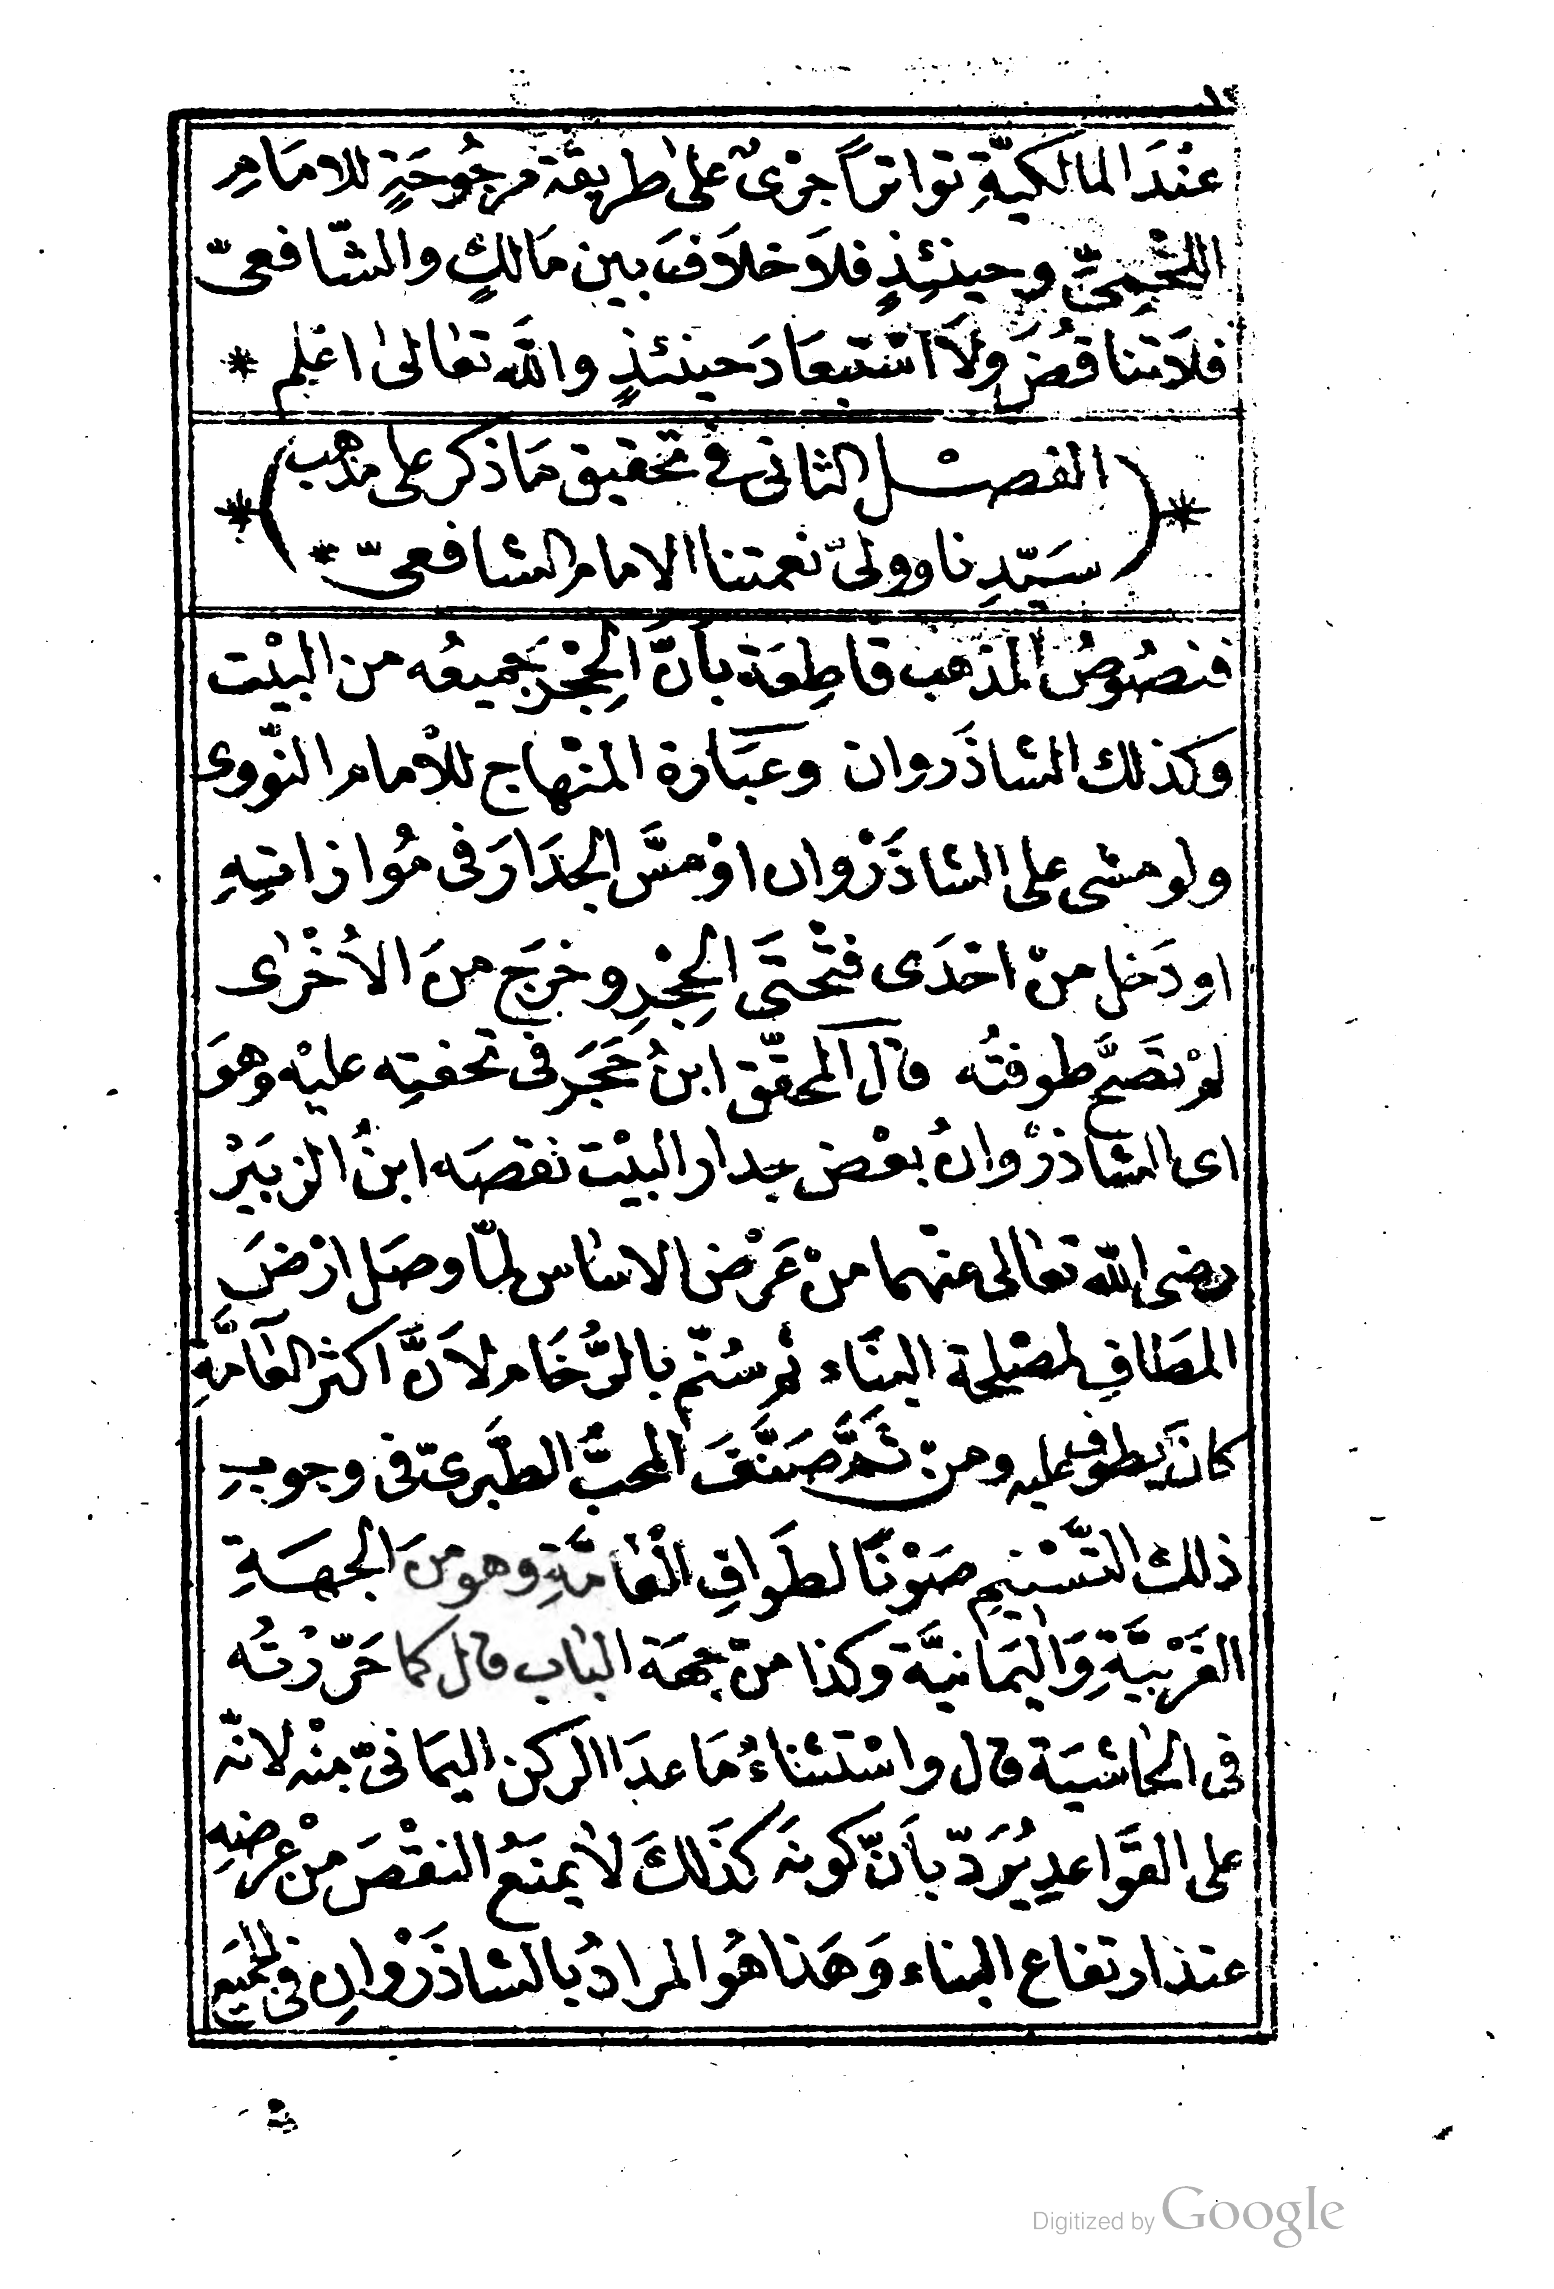 عنْدَ المالكيّةِ تواتراً جرْىٌ علٰى طريقة مرجُوحَةٍ للامَامِ
اللخْمِىِّ وحينئِذٍ فلاَ خلاَفَ بين مَالكٍ والشّافعىّ
فلاَ تناقُضَ ولاَ اسْتبعَادَ حينئذٍ والله تعٰالىٰ اعْلم *
*( الفصْل الثانى فى تحقيق مَا ذكر على مذهب
سَيّدِنا وولىّ نعمتنا الامام الشافعىّ * )*
فنصُوصُ المذهب قاطِعَة بأنَّ الحِجْرَ جَميعُه من البيْت
وكذلك الشاذَروان وعبَارة المنْهاج للاْمام النّووى
ولو مشى على الشاذَرْوان اوْ مسَّ الجدَارَ فى مُوازاتِهِ
او دَخل منْ احْدَى فتْحتَى الحِجْرِ وخرَج منَ الاُخْرٰى
لمْ تصَحَّ طوفتُه قالَ المحقّق ابنُ حَجَر فى تحفتِه عليْه وهوَ
اى الشاذرْوانُ بعْض جدار البيْت نقصَه ابنُ الزبَيْر
رضى الله تعٰالى عنْهما منْ عَرْض الاسٰاس لمّا وصَل ارْضَ
المطَافِ لمصْلحة البنَاء ثم سُنّم بالرُّخَام لاَنَّ اكثر العَامَّةِ
كانَ يطوف عليه ومنْ ثَمَّ صَنَّفَ المحبُّ الطَّبرىّ فى وجوبِ
ذلك التَّسْنيمِ صَوْنًا لطَوافِ الْعٰامَّةِ وهو منَ الجهَةِ
الغَرْبيَّةِ وَاليَمانيَّة وكذا منْ جهَة البٰاب قال كما حَرّرْتُه
فى الحٰاشيَة قال واسْتثناءُ مَا عدَا الركن اليمَانىّ منْه لانّه
على القوَاعدِ يُرَدّ بأنّ كونهَ كذٰلكَ لاٰ يمنَعُ النقْصَ منْ عرضهِ
عند ارتفاع البناء وَهَذا هُو المرادُ بالشاذَرْوانِ فى الجميَع